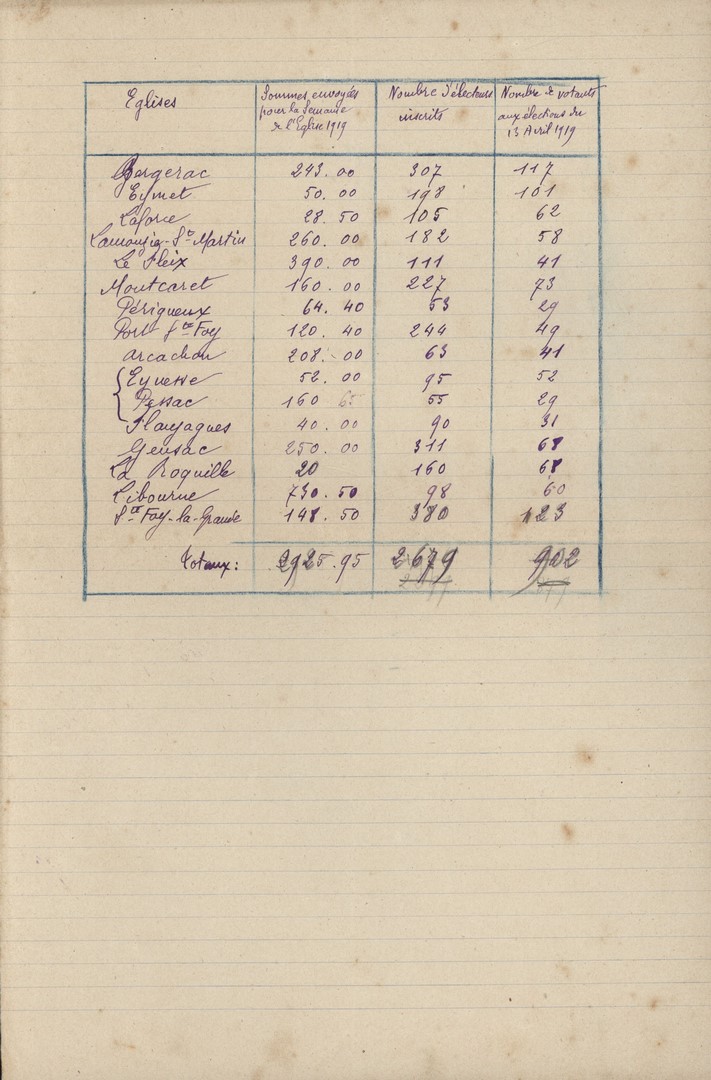 Eglises | Sommes envoyées pour la Semaine de l'Eglise 1919 | Nombre d'électeurs inscrits | Nombre de votants aux élections du 13 Avril 1919
Bergerac 243.00 307 117
Eymet 50.00 198 101
Laforce 28.50 105 62
Lamonzie-St-Martin 260.00 182 58
Le Fleix 390.00 111 41
Montcaret 160.00 227 73
Périgueux 64.40 53 29
Port Ste Foy 120.40 244 49
Arcachon 208.00 63 41
Eynesse 52.00 95 52
Pessac 160 65 55 29
Flaujagues 40.00 90 31
Gensac 250.00 311 68
La Roquille 20 160 68
Libourne 730.50 98 60
Ste Foy-la-Grande 148.50 380 123
Totaux: 2925.95 2679 902